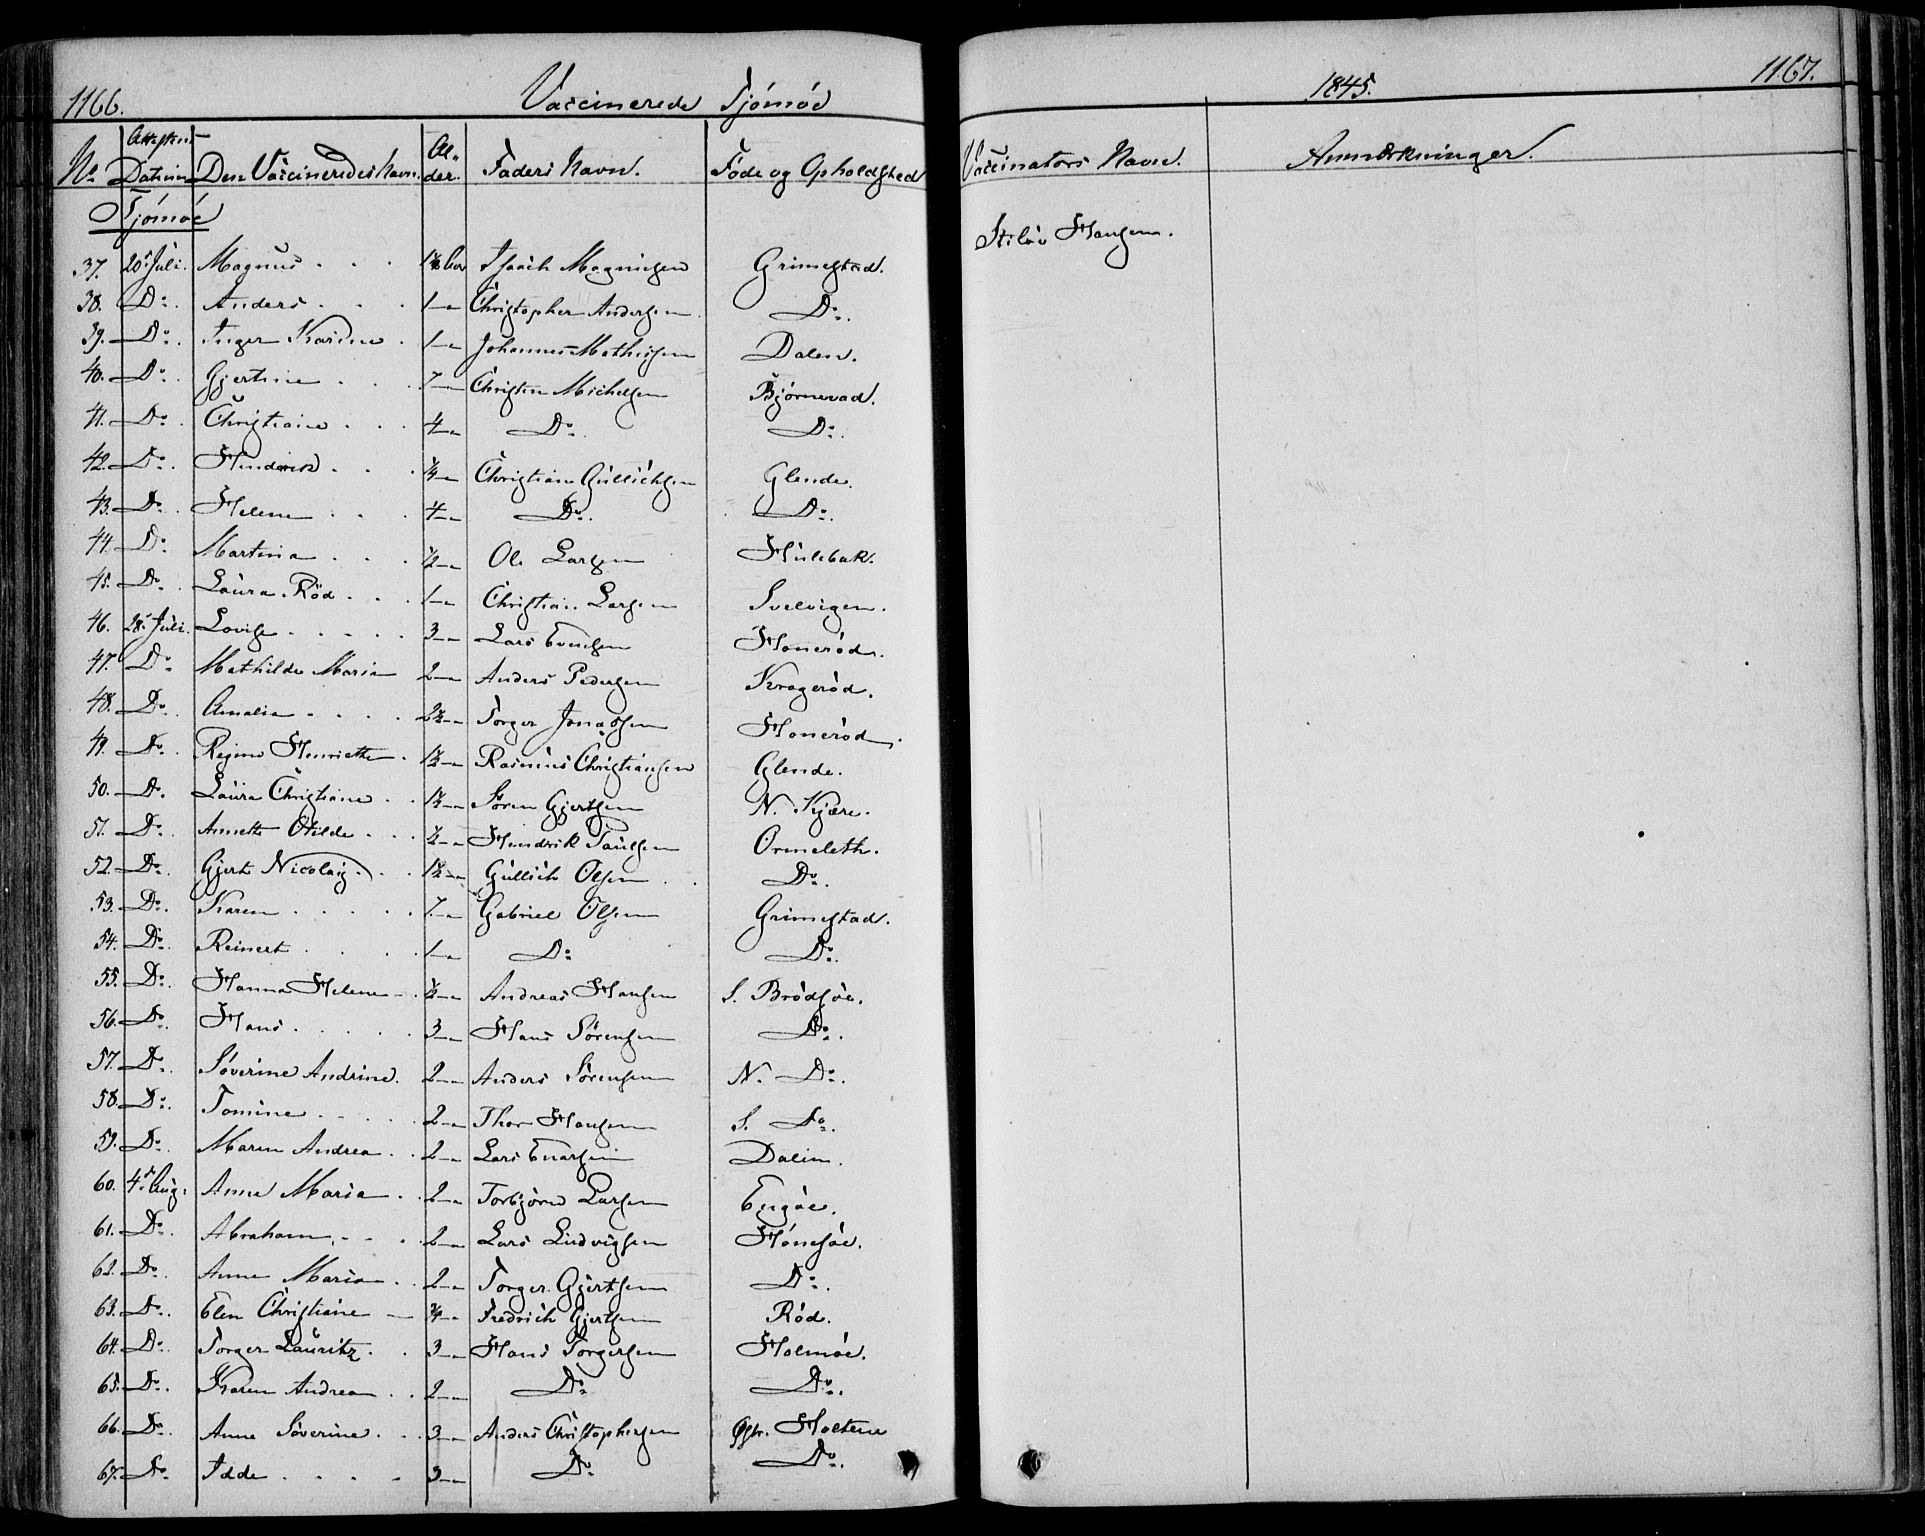 1166.
Vaccinerede Tjømöe
No Attestens Datum Den Vaccineredes Navn. Al-der. Faders Navn. Føde og Opholdssted
Tjömöe
37. 20de Juli. Magnus Isaach Magnusen Grimestad.
38. Do. Anders 1 Christopher Andersen Do.
39. Do. Inger Karine 1 Johannes Mathisen Dalen.
40. Do. Gjertine 7 Christen Michelsen Bjørnevad.
41. Do. Christiane 4 Do. Do.
42. Do. Hinderik ¼ Christian Gullichsen Glende.
43. Do. Helene 4 Do. Do.
44. Do. Martina ½ Ole Larsen Hulebak.
45. Do. Laura Röd 1 Christian Larsen Svelvigen.
46. 28. Juli. Lovise 3 Lars Evensen Honeröd.
47. Do. Mathilde Maria 2 Anders Pedersen Krageröd.
48. Do. Amalia 2½ Torger Jonassen Honeröd.
49. Do. Regine Henriette 1½ Rasmus Christiansen Glende.
50. Do. Laura Christiane 1½ Sören Gjertsen N. Kjære.
51. Do. Annette Otilde ½ Hendrik Paulsen Ormeleth.
52. Do. Gjert Nicolaiy 1½ Gullich Olsen Do.
53. Do. Karen 7 Gabriel Olsen Grimestad.
54. Do. Reinert 1 Do. Do.
55. Do. Hanna Helene ½ Andreas Hansen S. Brödsöe.
56. Do. Hans 3 Hans Sörensen Do.
57. Do. Söverine Andrine 2 Anders Sörensen N. Do.
58. Do. Tomine 2 Thor Hansen S. Do.
59. Do. Maren Andrea 2 Lars Enarsen Dalen.
60. 4de Aug. Anne Maria 2 Torbjörn Larsen Engöe.
61. Do. Abraham 2 Lars Ludvigsen Hönesöe.
62. Do. Anne Maria 2 Torger Gjertsen Do.
63. Do. Elen Christiane ¾ Fredrich Gjertsen Röd.
64. Do. Torger Lauritz 3 Hans Torgersen Holmöe.
65. Do. Karen Andrea 2 Do. Do.
66. Do. Anne Söverine 3 Anders Christophersen Holtene
67. Do. Idde 3 Do. Do.
1845.
1167.
Vaccinators Navn. Anmærkninger.
Hansen.